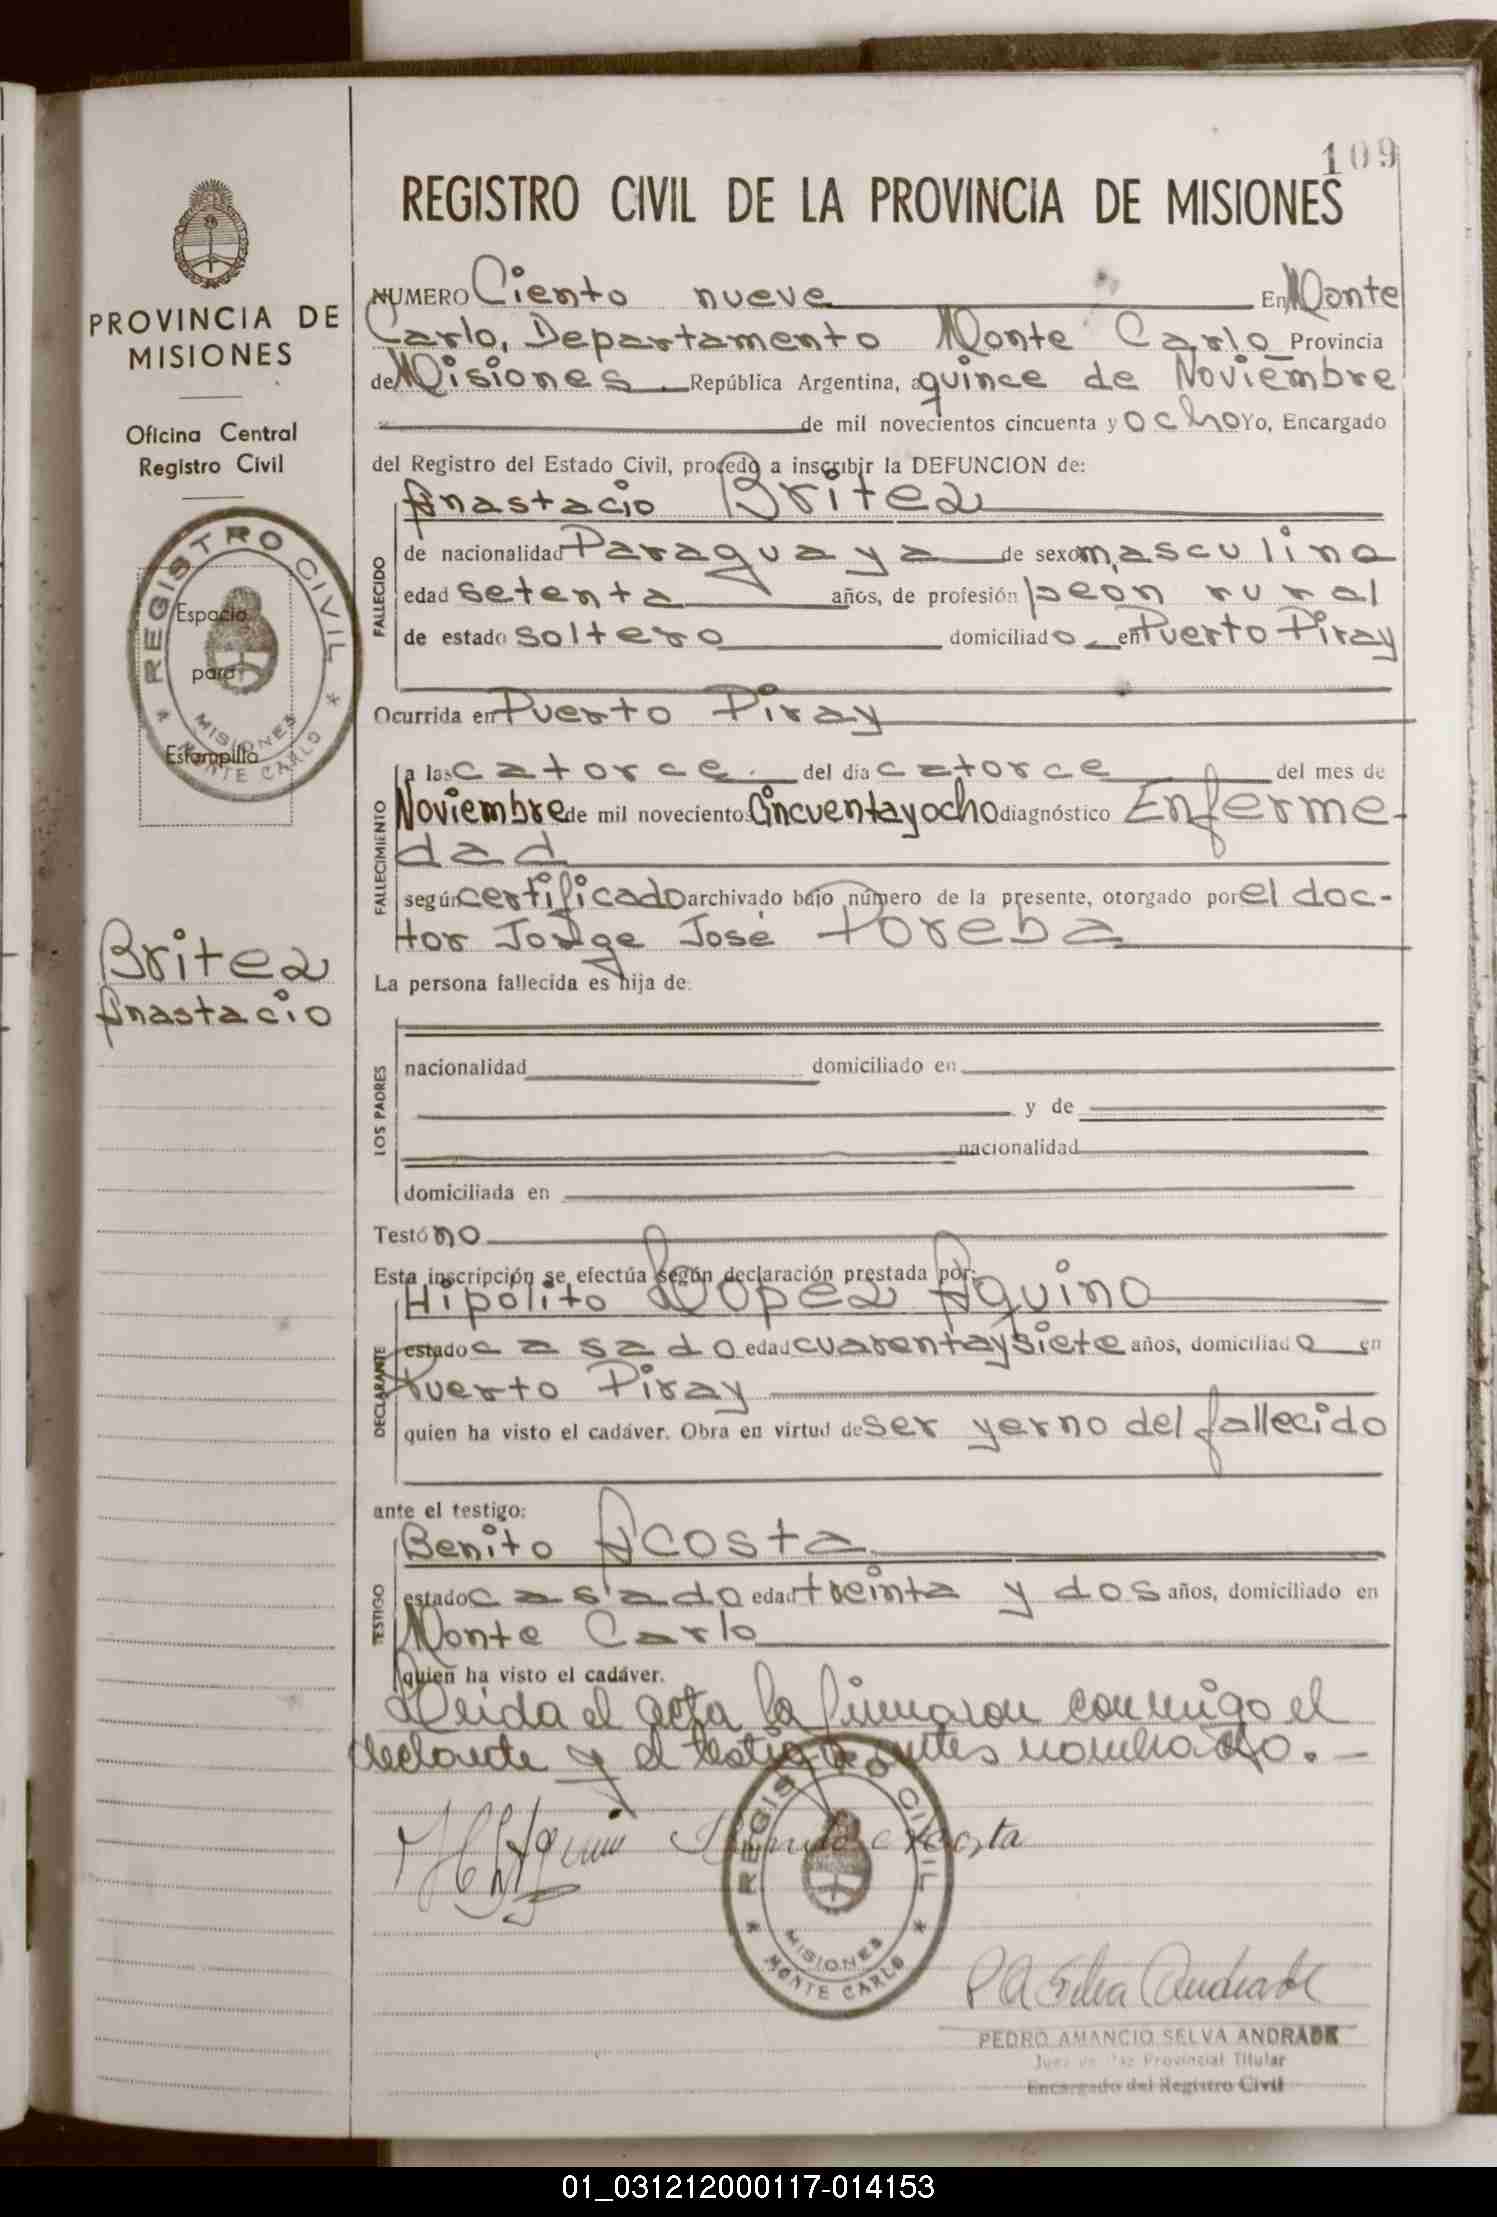 109
REGISTRO CIVIL DE LA PROVINCIA DE MISIONES
PROVINCIA DE
MISIONES
Oficina Central
Registro Civil
REGISTRO CIVIL
MISIONES
MONTE CARLO
Espacio
para
Estampilla
Britez
Anastacio
NUMERO Ciento nueve En Monte
Carlo, Departamento Monte Carlo Provincia
de Misiones República Argentina, a quince de Noviembre
de mil novecientos cincuenta y ocho Yo, Encargado
del Registro del Estado Civil, procedo a inscribir la DEFUNCION de:
Anastacio Britez
FALLECIDO
de nacionalidad Paraguaya de sexo masculino
edad setenta años, de profesión peon rural
de estado soltero domiciliado en Puerto Piray
Ocurrida en Puerto Piray
FALLECIMIENTO
a las catorce del día catorce del mes de
Noviembre de mil novecientos Cincuentayocho diagnóstico Enferme-
dad
según certificado archivado bajo número de la presente, otorgado por el doc-
tor Jorge José Poreba
La persona fallecida es hija de:
LOS PADRES
nacionalidad domiciliado en
y de
nacionalidad
domiciliada en
Testó no
Esta inscripción se efectúa según declaración prestada por:
Hipólito Lopez Aquino
DECLARANTE
estado casado edad cuarentaysiete años, domiciliado en
Puerto Piray
quien ha visto el cadáver. Obra en virtud de ser yerno del fallecido
ante el testigo:
Benito Acosta
TESTIGO
estado casado edad treinta y dos años, domiciliado en
Monte Carlo
quien ha visto el cadáver.
Leida el acta la firmaron conmigo el
declarante y el testigo antes nombrado.
Benito Acosta
REGISTRO CIVIL
MISIONES
MONTE CARLO
P A Selva Andrade
PEDRO AMANCIO SELVA ANDRADE
Juez de Paz Provincial Titular
Encargado del Registro Civil
01_031212000117-014153